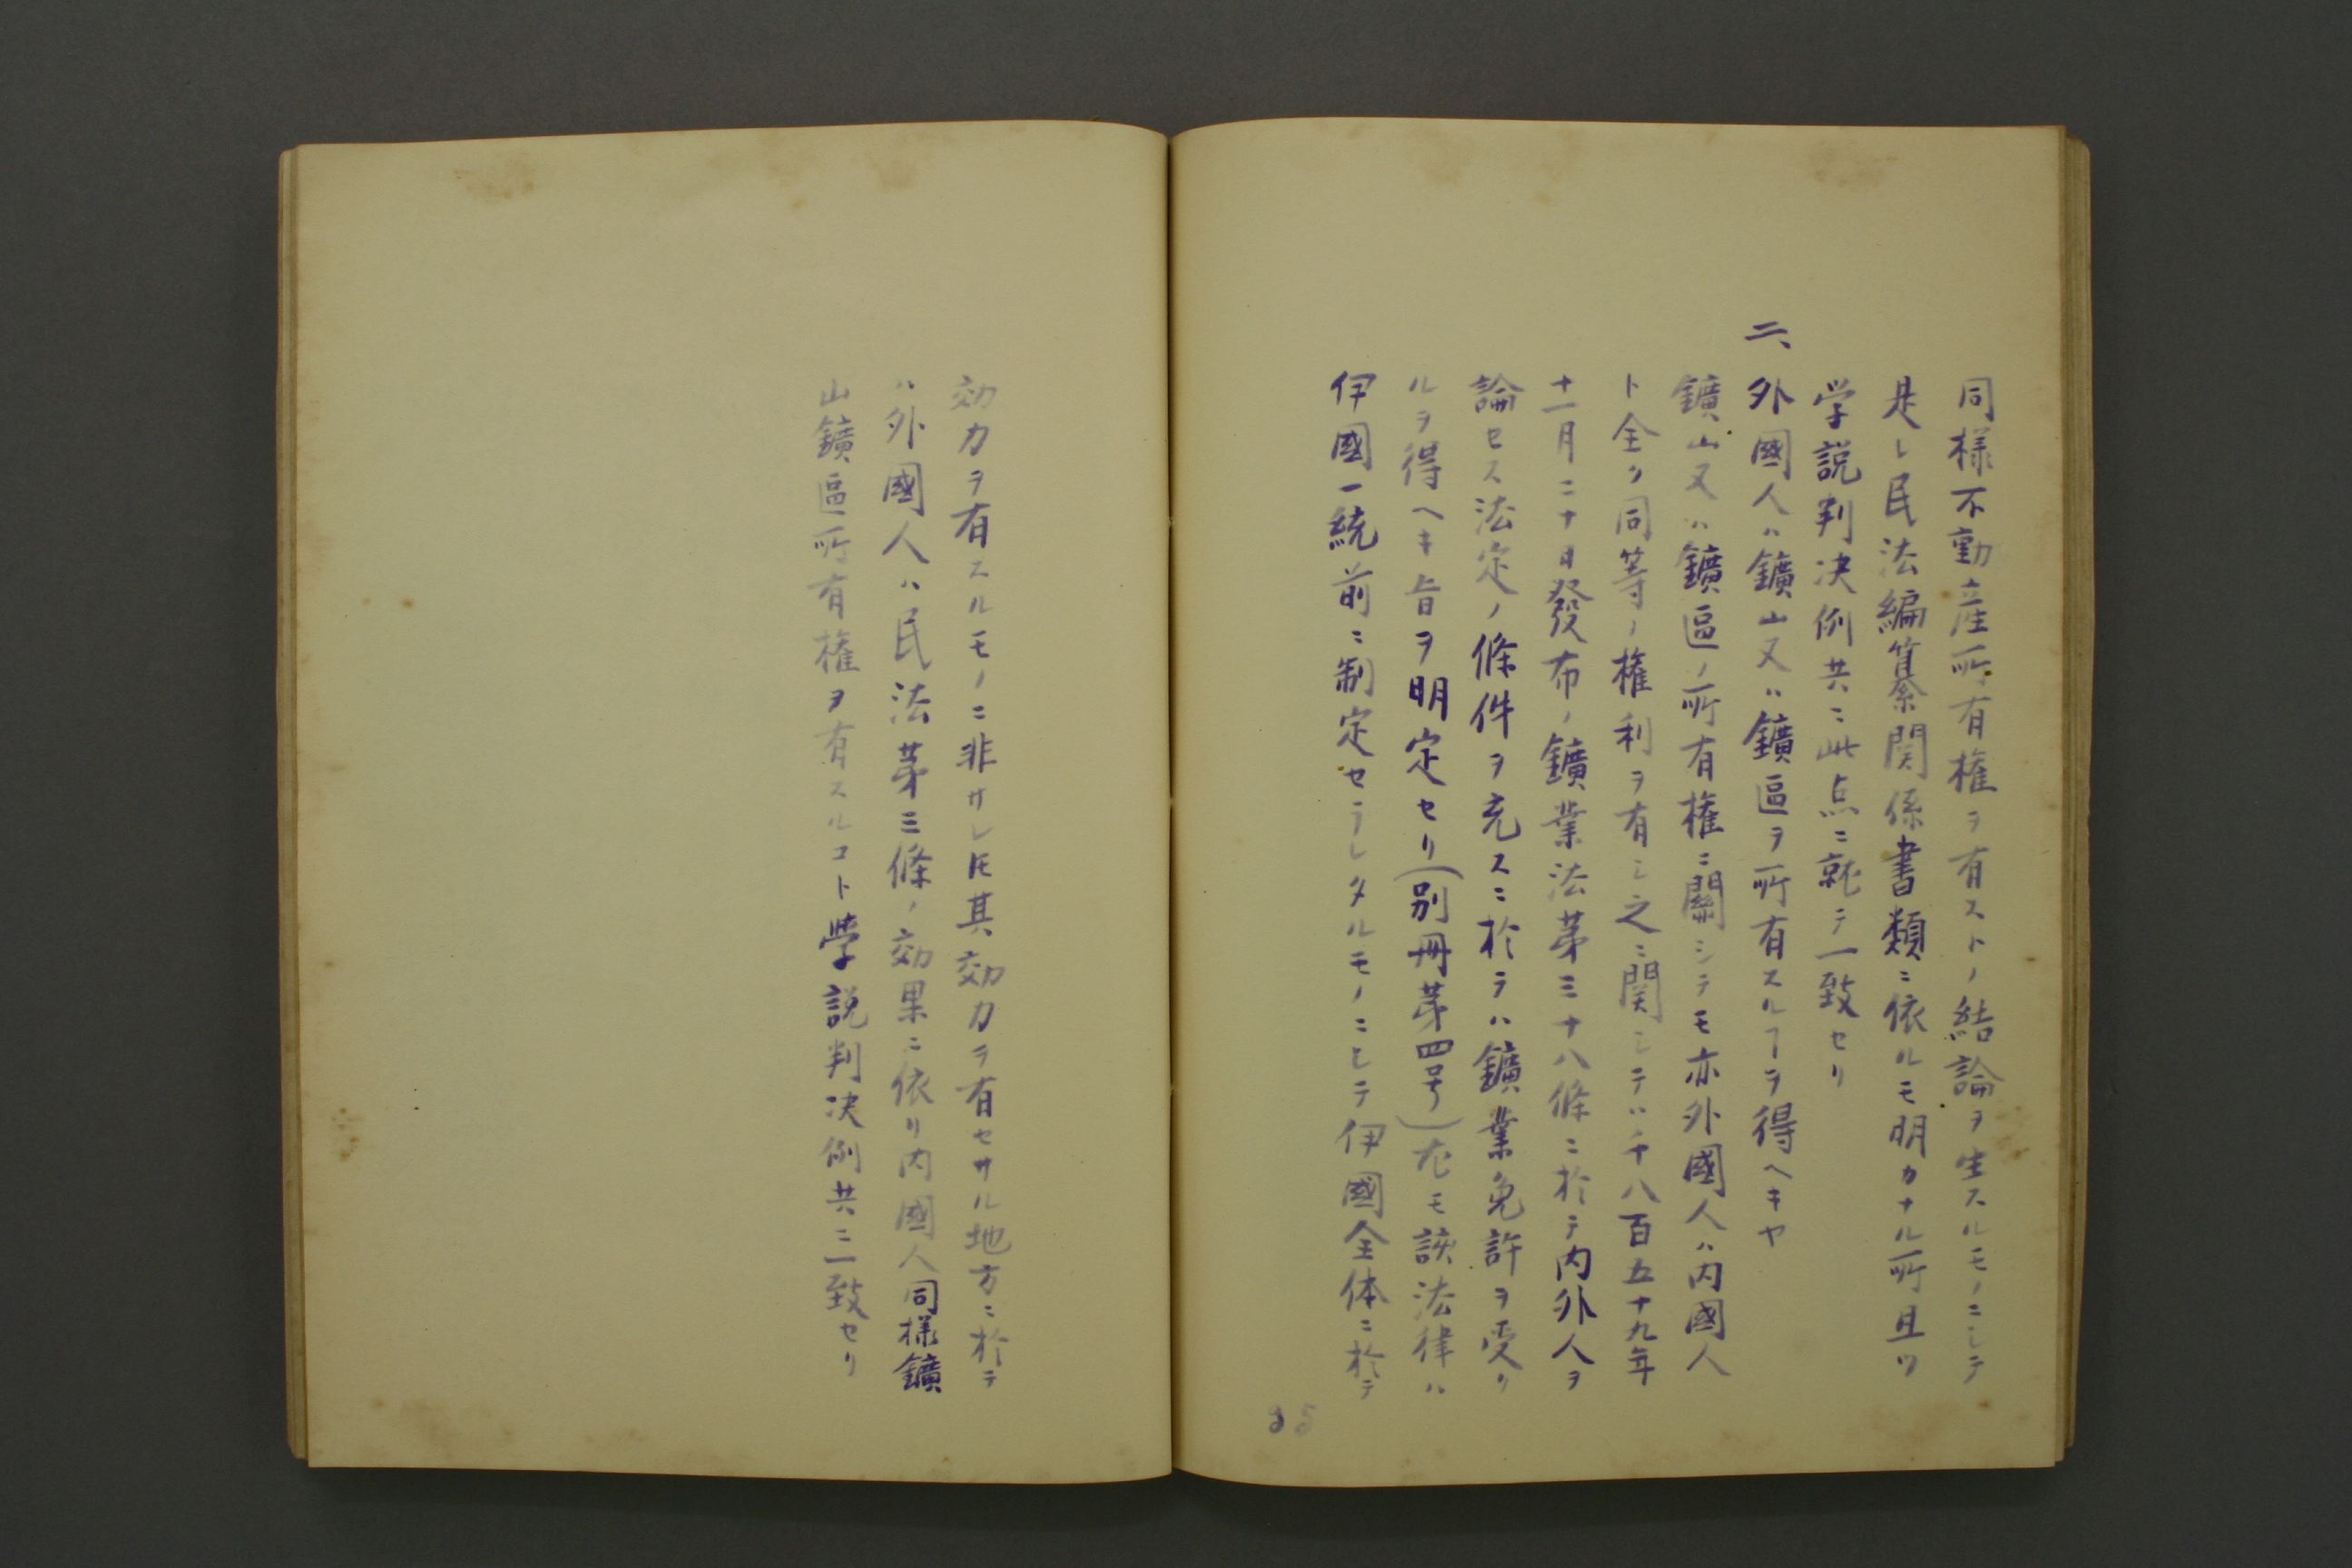 同様不動産所有権ヲ有ストノ結論ヲ生スルモノニシテ
是レ民法編纂関係書類ニ依ルモ明カナル所且ツ
学説判決例共ニ此点ニ就テ一致セリ
二、外國人ハ鑛山又ハ鑛區ヲ所有スルヿヲ得ヘキヤ
鑛山又ハ鑛區ノ所有権ニ關シテモ亦外國人ハ内國人
ト全ク同等ノ権利ヲ有シ之ニ関シテハ千八百五十九年
十一月二十日發布ノ鑛業法苐三十八條ニ於テ内外人ヲ
論セス法定ノ條件ヲ充スニ於テハ鑛業免許ヲ受ク
ルヲ得ヘキ旨ヲ明定セリ(別冊苐四号)尤モ該法律ハ
伊國一統前ニ制定セラレタルモノニシテ伊國全体ニ於テ
85
効力ヲ有スルモノニ非サレ𪜈其効力ヲ有セサル地方ニ於テ
ハ外國人ハ民法苐三條ノ効果ニ依リ内國人同様鑛
山鑛區所有権ヲ有スルコト學説判决例共ニ一致セリ